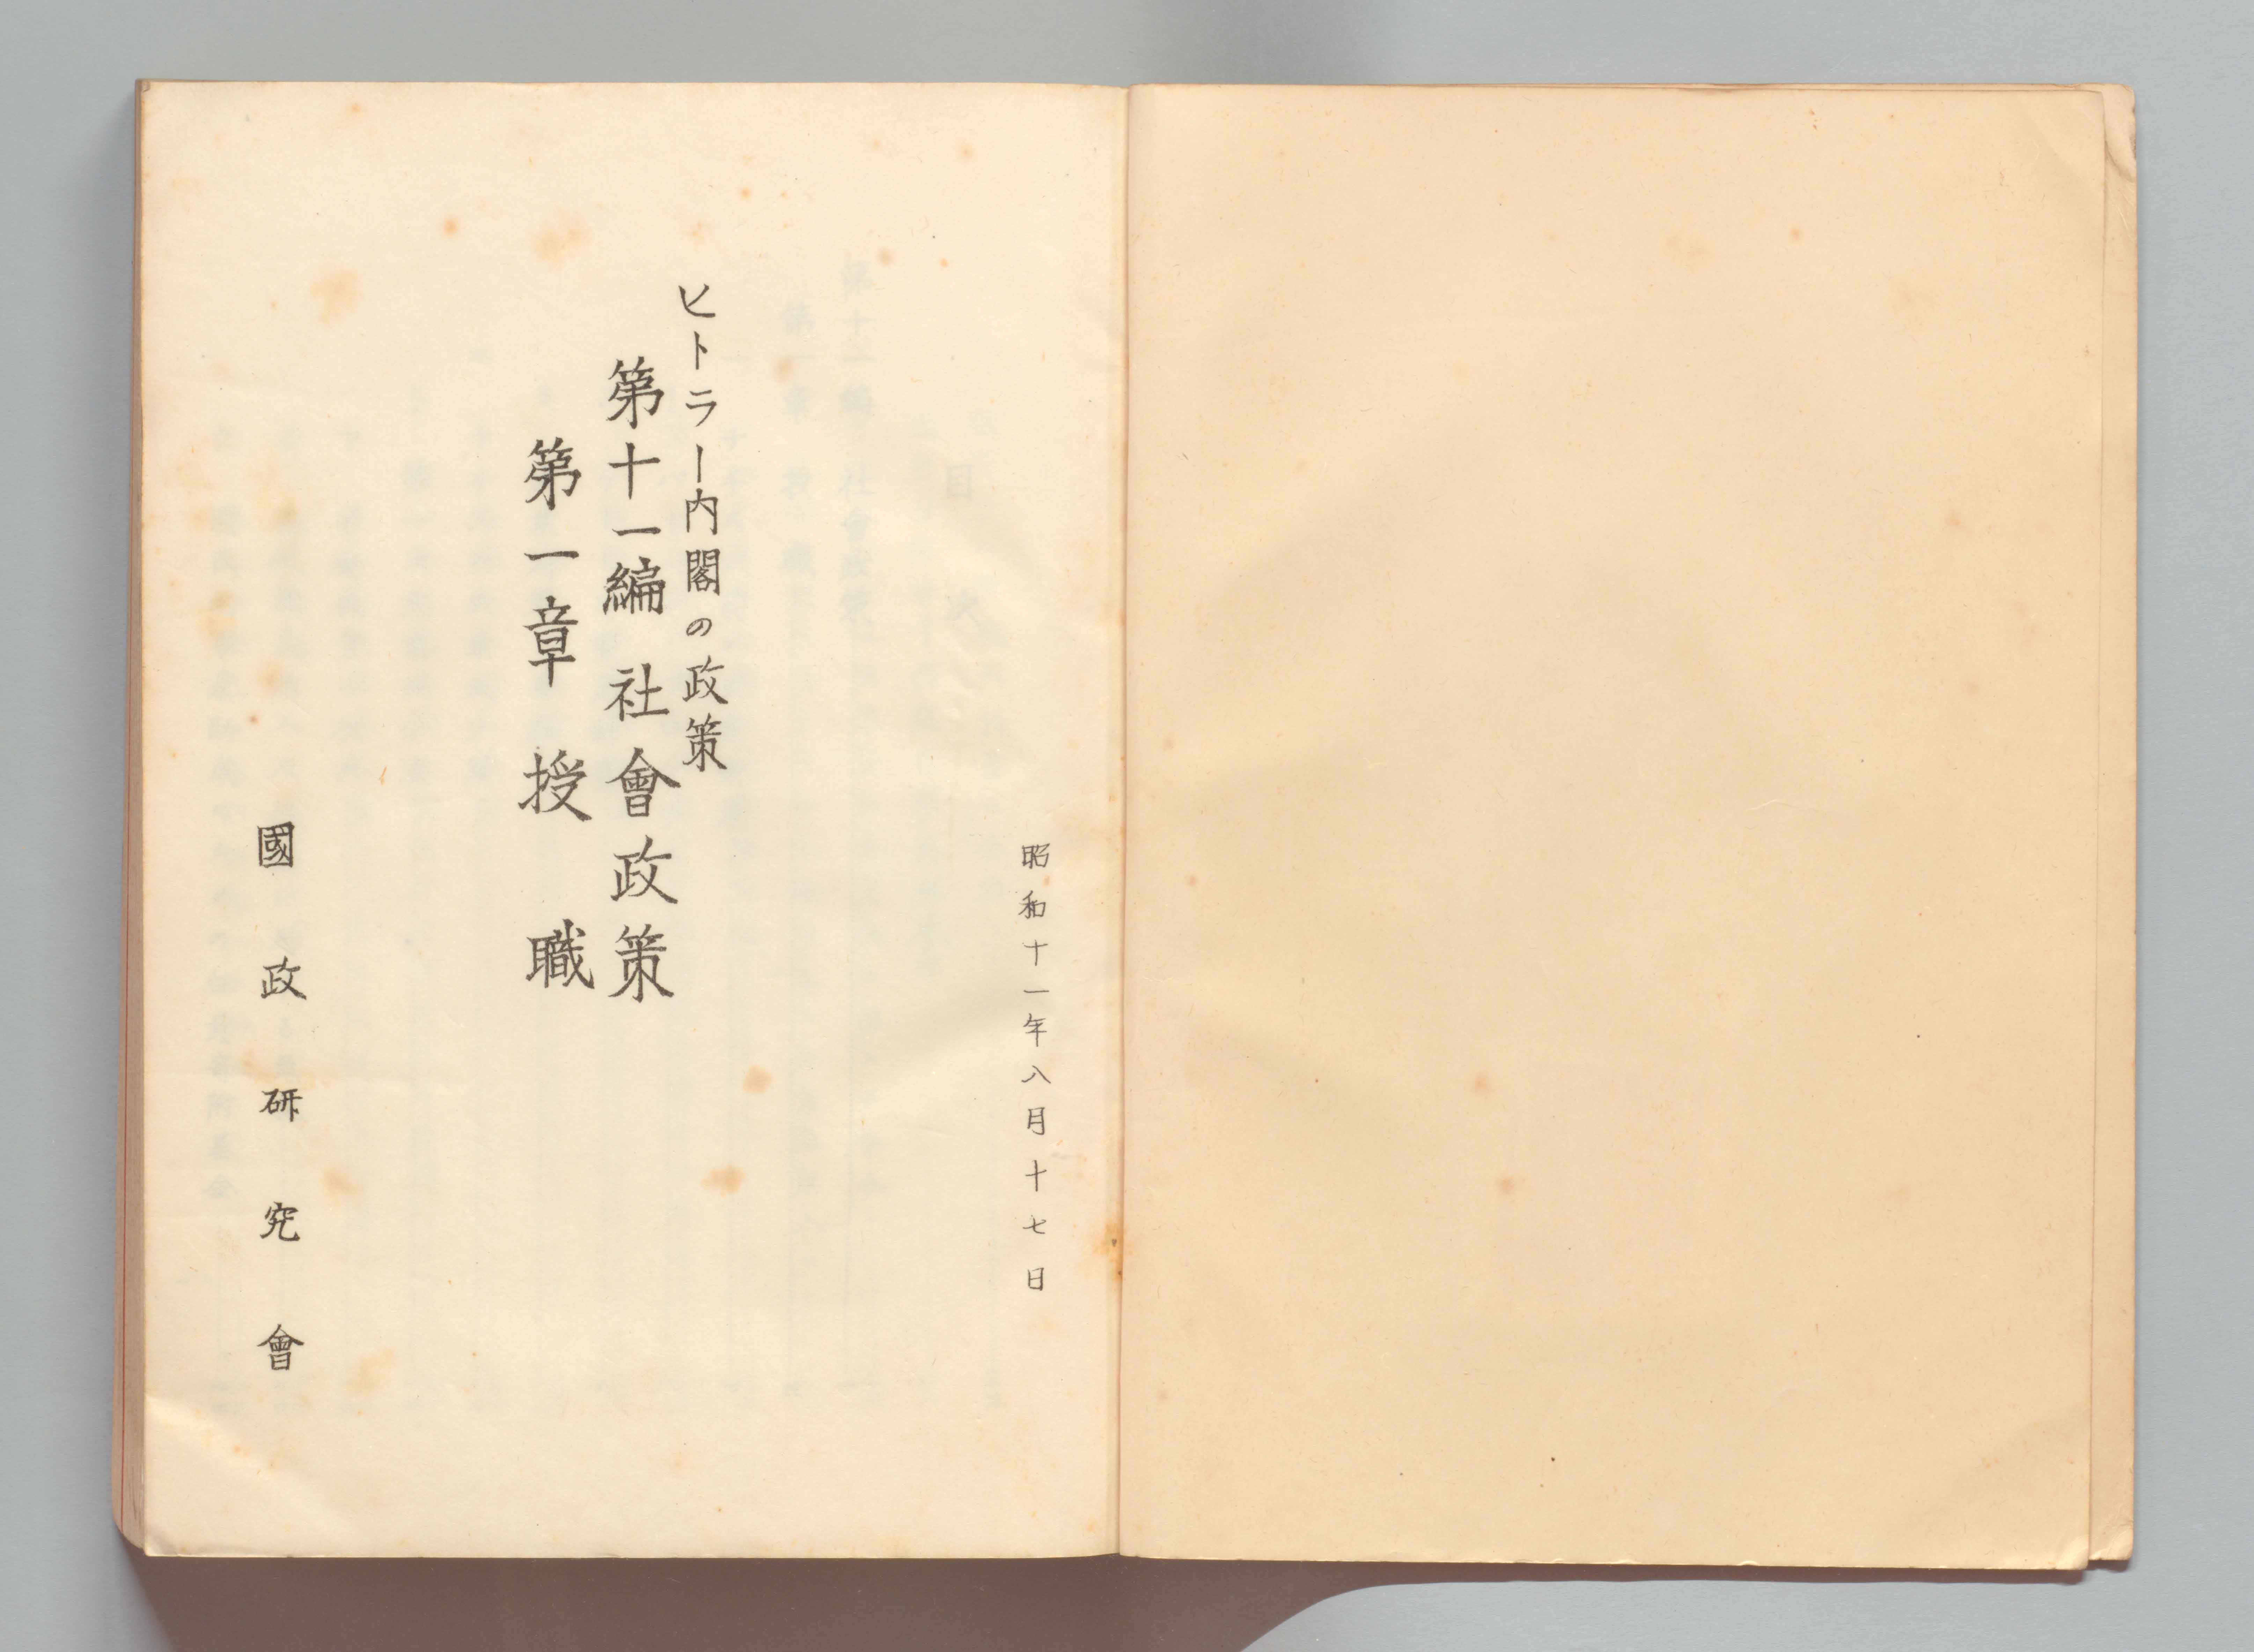 昭和十一年八月十七日
ヒトラー内閣の政策
第十一編 社會政策
第一章 授職
國政研究會